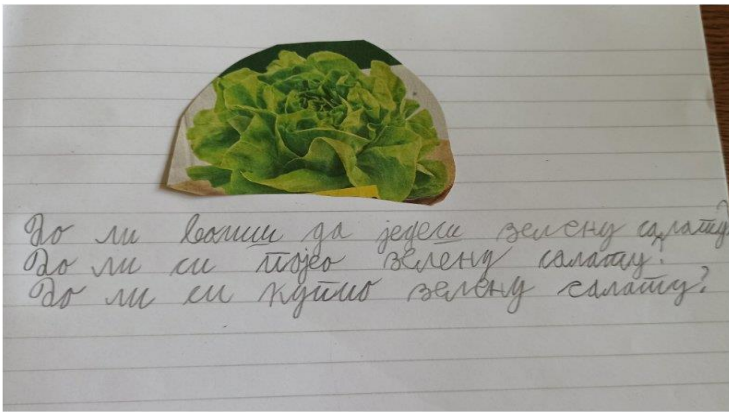 До ли волиш да једеш зелену салату?
До ли си појео зелену салату?
До ли си купио зелену салату?